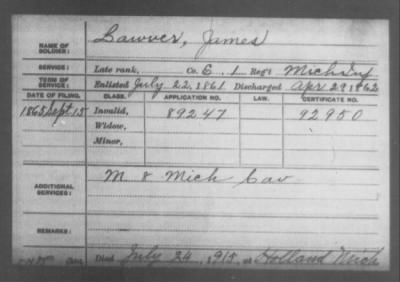 NAME OF SOLDIER: Lawver, James
SERVICE: Late rank, Co. G, 1 Reg't Mich Inf
TERM OF SERVICE: Enlisted July 22, 1861 Discharged Apr 29 1862
DATE OF FILING. CLASS. APPLICATION NO. LAW. CERTIFICATE NO.
1865 Sept 15 Invalid, 89247 92950
Widow,
Minor,
ADDITIONAL SERVICES: M 8 Mich Cav
REMARKS:
Died July 24, 1915 at Holland Mich